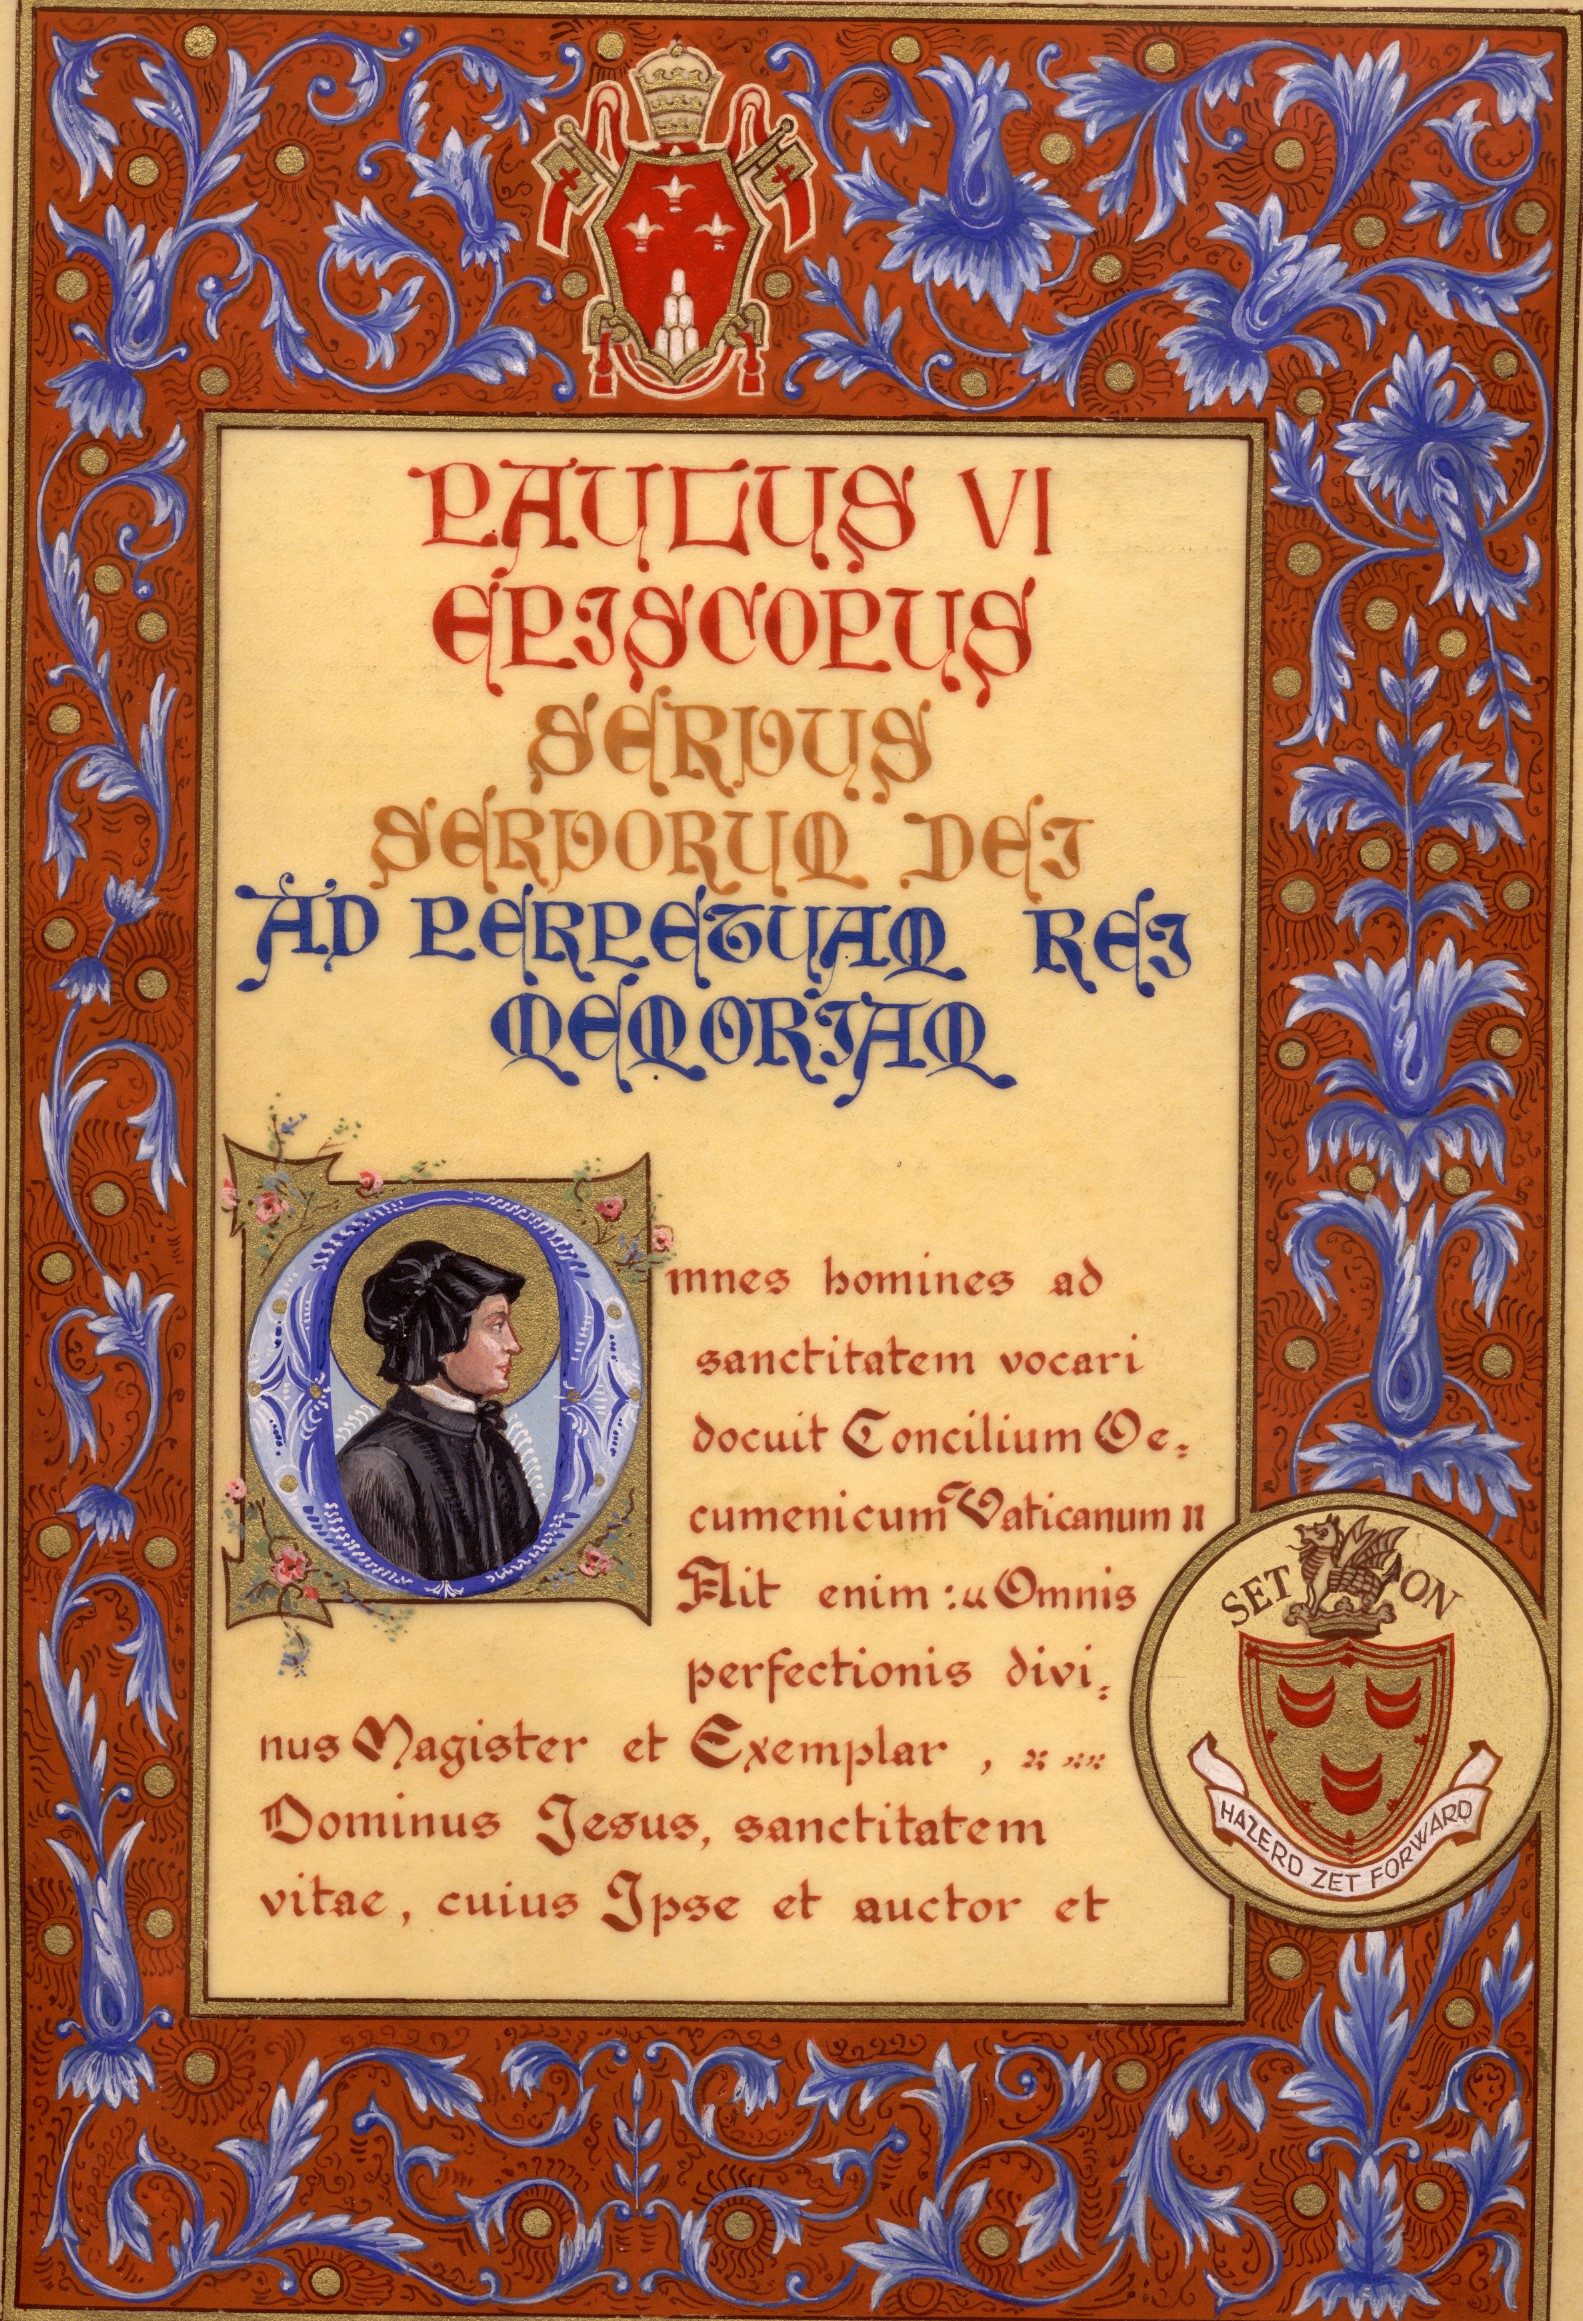 PAULUS VI
EPISCOPUS
SERVUS
SERVORUM DEI
AD PERPETUAM REI
MEMORIAM
Omnes homines ad
sanctitatem vocari
docuit Concilium Oe=
cumenicum Vaticanum II
Ait enim : « Omnis
perfectionis divi=
nus Magister et Exemplar ,
Dominus Jesus, sanctitatem
vitae, cuius Ipse et auctor et
SET ON
HAZERD ZET FORWARD